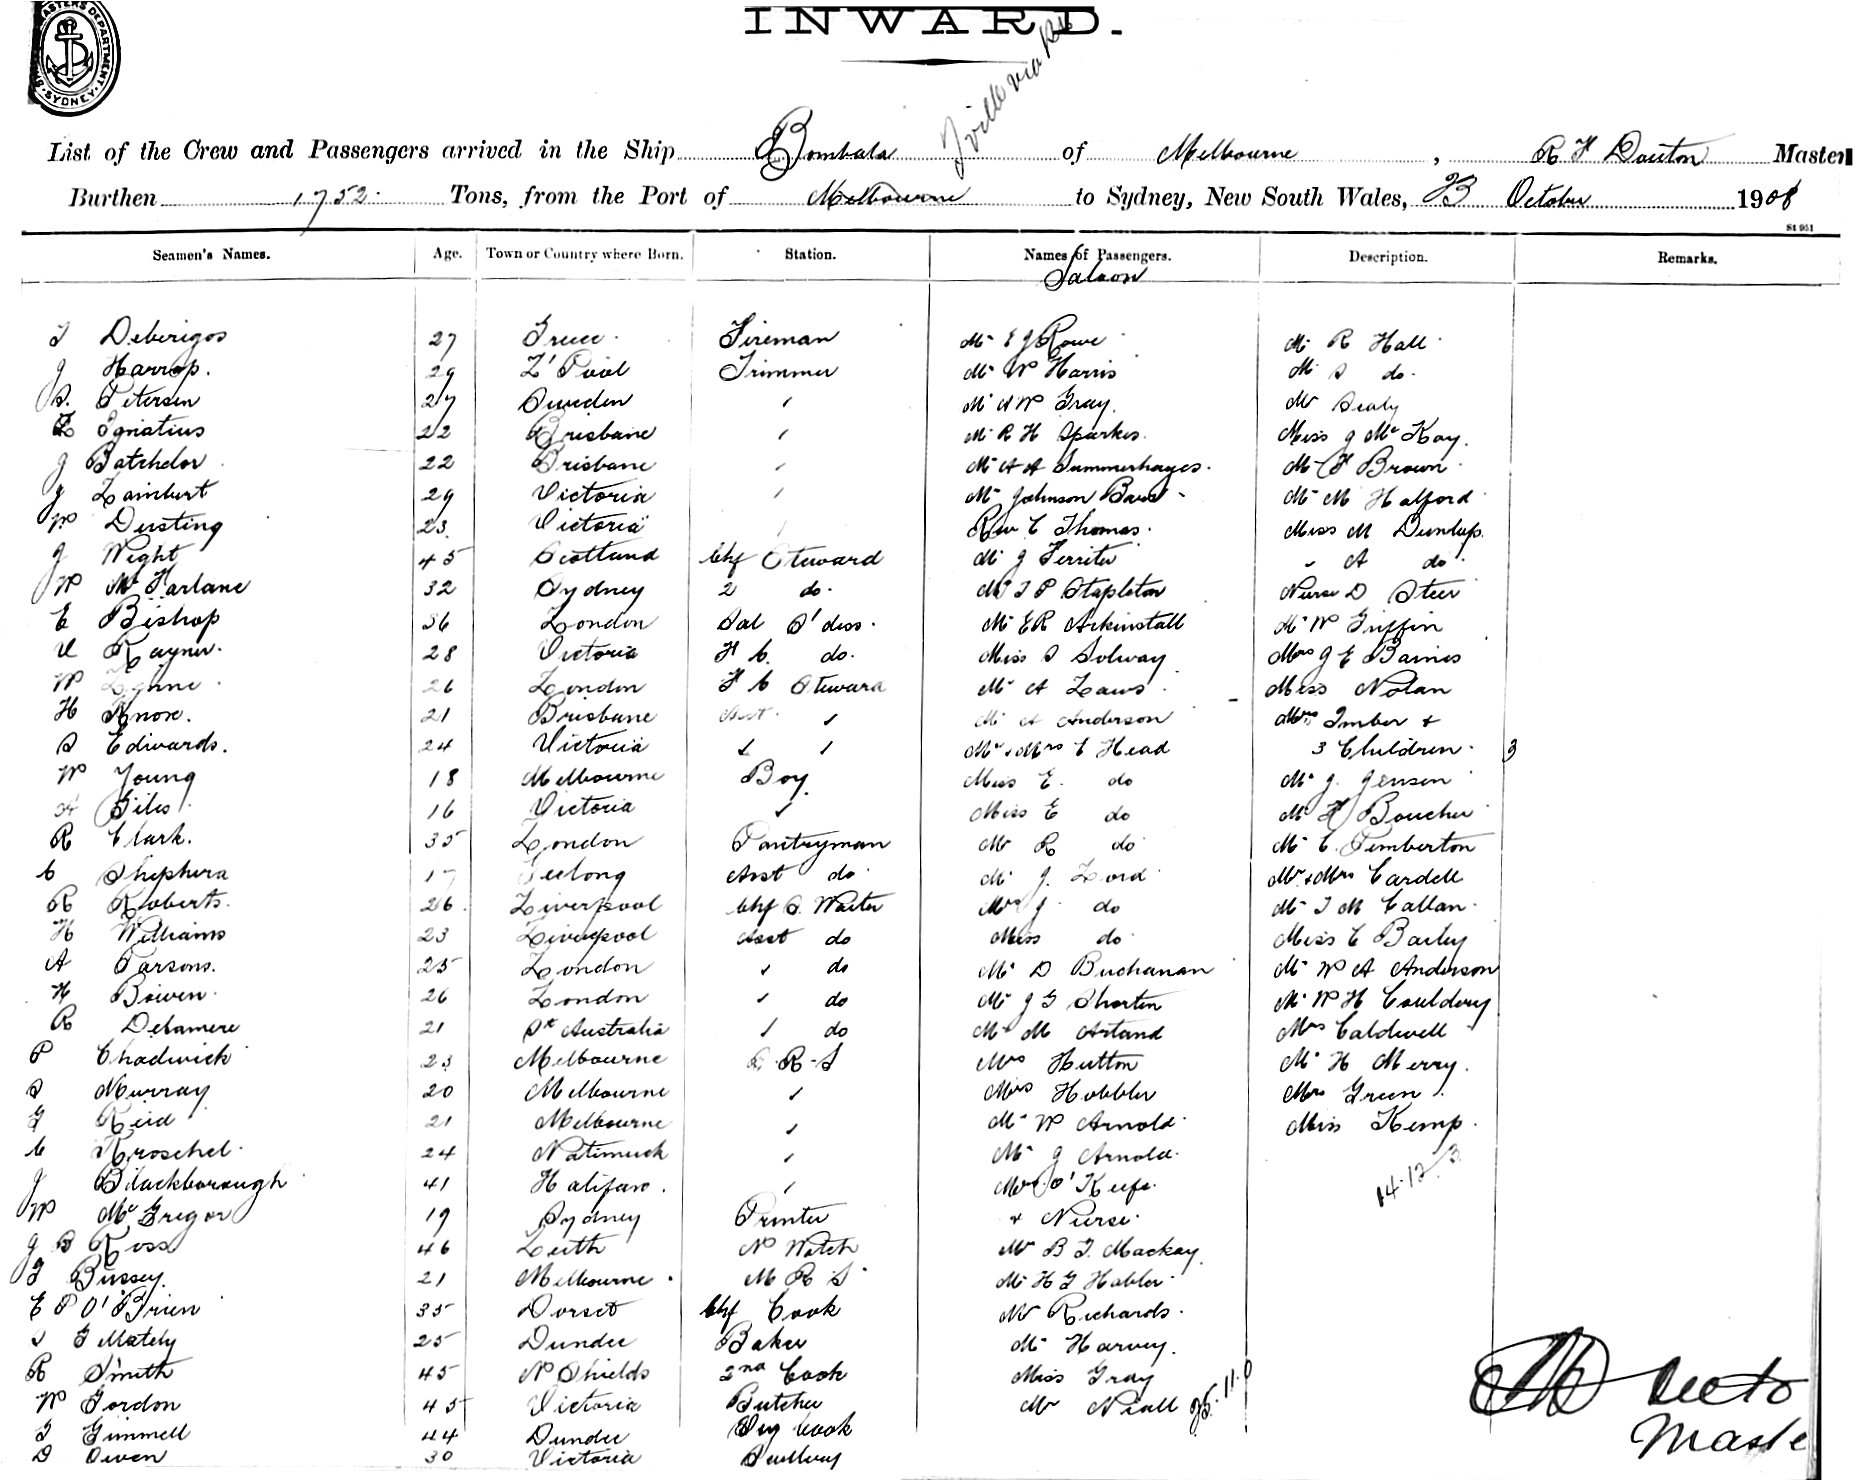 MASTERS DEPARTMENT
SYDNEY
INWARD.
List of the Crew and Passengers arrived in the Ship Bombala of Melbourne, R F Douton Master
Burthen 1752 Tons, from the Port of Melbourne to Sydney, New South Wales, 23 October 1908
St 951
Seamen's Names. Age. Town or Country where Born. Station. Names of Passengers. Description. Remarks.
Saloon
Deberigos 27 Greece Fireman Mr E J Rowe Mr R Hall
J Harrop. 29 L'Pool Trimmer Mr W Harris Mr S do.
Petersen 27 Sweden " Mr A W Gray. Mr Sealy
Ignatius 22 Brisbane " Mr R H Sparkes. Miss J McKay.
J Batchelor 22 Brisbane " Mr A A Summerhayes. Mr F Brown
J Lambert 29 Victoria " Mr Johnson Mr M Halford
W Dusting 23 Victoria Rev C Thomas. Miss M Dunlop.
J Wight 45 Scotland Chf Steward Mr J Ferriter " A do.
W McFarlane 32 Sydney 2 do. Mr T P Stapleton Nurse D Steer
E Bishop 36 London Sal S'dess. Mr E R Arkinstall Mr W Griffin
Rayner. 28 Victoria F C. do. Miss S Solway Mrs J E Baines
W 26 London F C Steward Mr A Laws Miss Nolan
H Knox. 21 Brisbane Asst " Mr A Anderson Mrs Imber +
S Edwards. 24 Victoria " " Mr & Mrs C Head 3 Children. 3
W Young 18 Melbourne Boy. Miss E. do Mr J. Jensen
Giles 16 Victoria " Miss E do Mr H Boucher
R Clark. 35 London Pantryman Mr R do Mr C. Pemberton
C Shepherd 17 Geelong Asst do Mr J. Lord Mr & Mrs Cardell
R Roberts. 26 Liverpool Chf S. Waiter Mrs J do Mr J M Callan
H Williams 23 Liverpool Asst do Miss do Miss C Bailey
A Parsons. 25 London " do Mr D Buchanan Mr W A Anderson
H Bowen. 26 London " do Mr J G Shorten Mr W H Couldery
R Delamere 21 Sth Australia " do Mr M Arland Mrs Caldwell
P Chadwick 23 Melbourne R S Mrs Hutton Mr H Merry.
S Murray 20 Melbourne " Mrs Hobbler Mrs Green
G Reid 21 Melbourne " Mr W Arnold Miss Kemp.
C Kroschel 24 Natimuck " Mr J Arnold
J Blackborough 41 Halifax. " Mrs O'Keefe. 14.12.3
W McGregor 19 Sydney Printer + Nurse
J B Ross 46 Leith N Watch Mr B J. Mackay
Bussey. 21 Melbourne. M R S Mr H G Habler
E P O'Brien 35 Dorset Chf Cook Mr Richards.
25 Dundee Baker Mr Harvey.
R Smith 45 N Shields 2nd Cook Miss Gray
W Gordon 45 Victoria Butcher Mr Niall 25.11.0
Gimmell 44 Dundee Cook
D Owen 30 Victoria Scullery
Maste